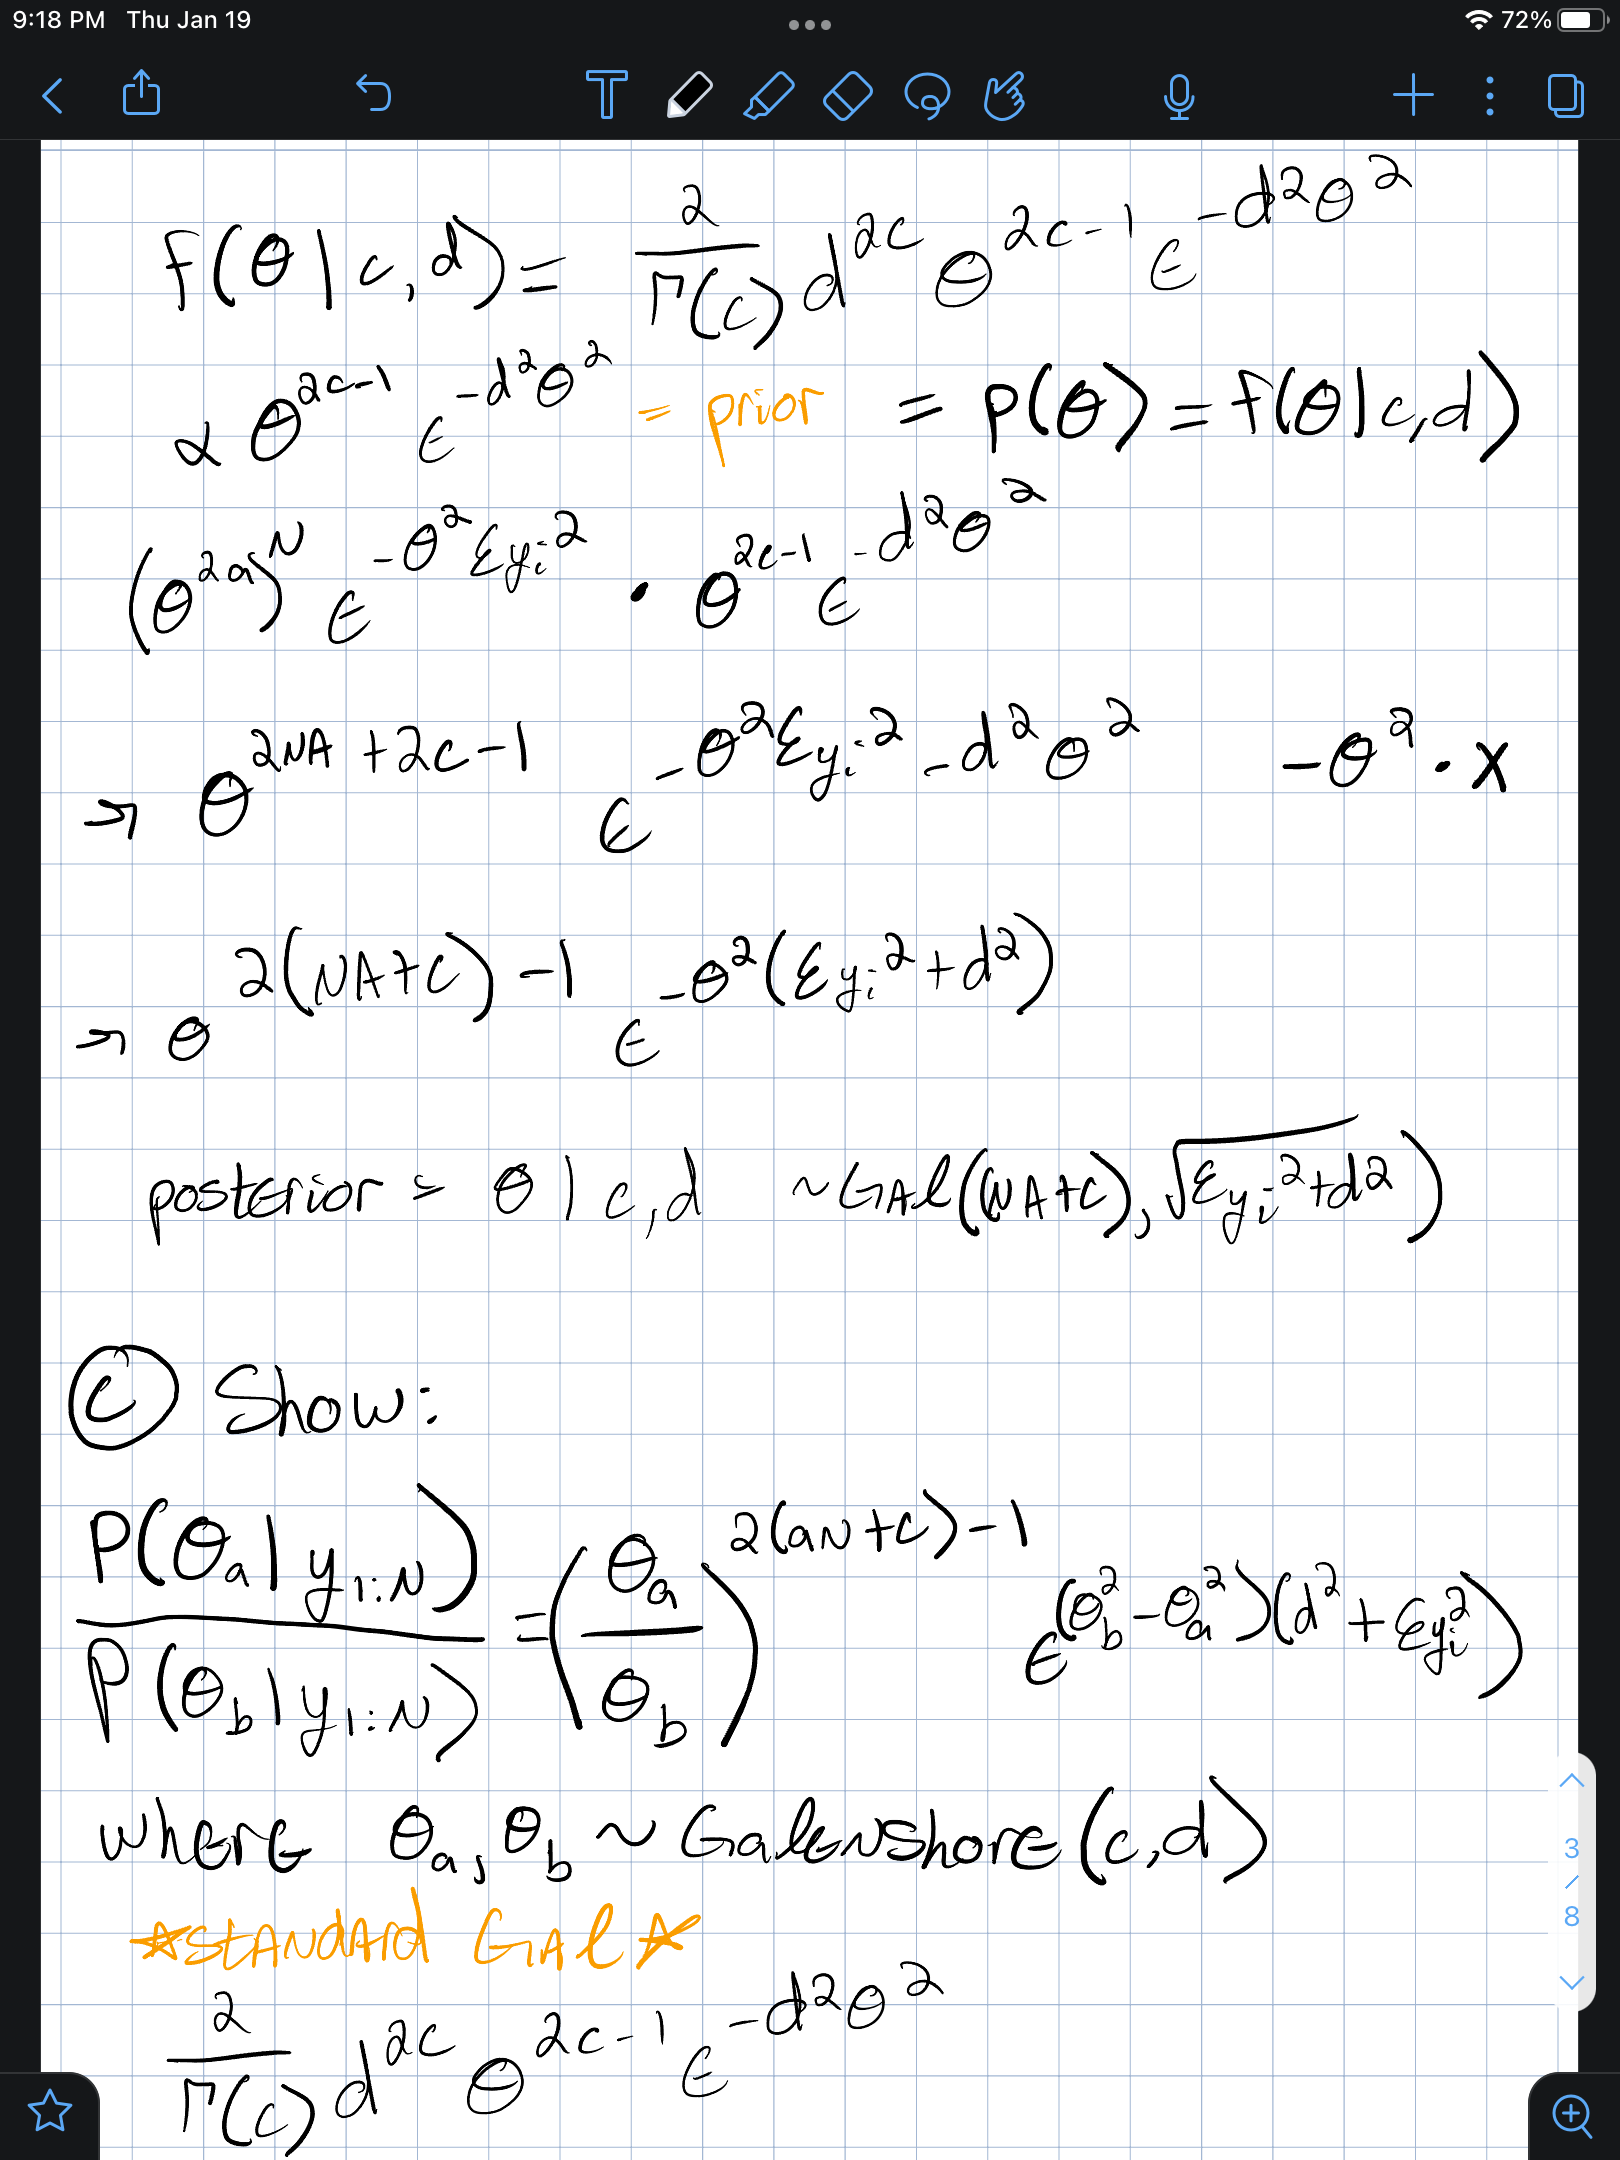 9:18 PM Thu Jan 19
72%
T
f(θ|c,d) = 2/Γ(c) d^2c θ^2c-1 e^-d²θ²
∝ θ^2c-1 e^-d²θ² = prior = p(θ) = f(θ|c,d)
(θ^2a)^N e^-θ²Σyi² · θ^2c-1 e^-d²θ²
→ θ^2NA+2c-1 e^-θ²Σyi²-d²θ² -θ²·x
→ θ^2(NA+C)-1 e^-θ²(Σyi²+d²)
posterior = θ|c,d ~GAl((NA+C), √Σyi²+d²)
(C) Show:
P(θa|y1:N)/P(θb|y1:N) = (θa/θb)^2(aN+C)-1 e^(θb²-θa²)(d²+Σyi²)
where θa, θb ~ Galenshore(c,d)
☆STANDARD GAl☆
2/Γ(c) d^2c θ^2c-1 e^-d²θ²
3
/
8